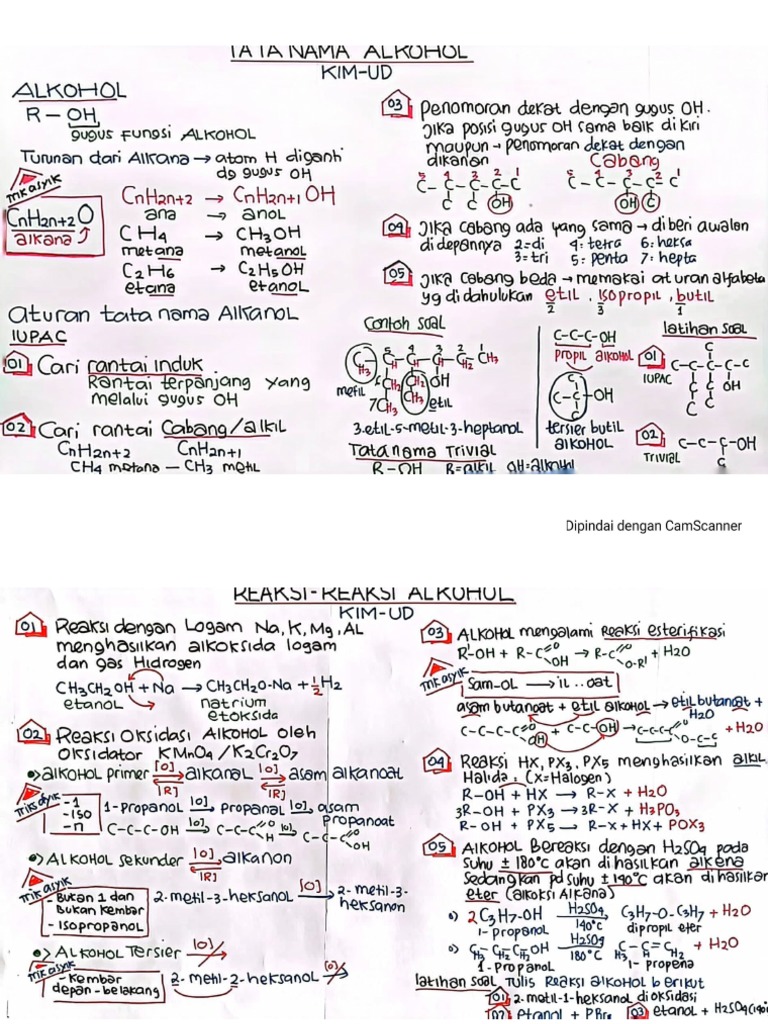 TATA NAMA ALKOHOL
KIM-UD
ALKOHOL
R-OH
gugus fungsi ALKOHOL
Turunan dari Alkana → atom H diganti
dg gugus OH
Trik asyik
CnH2n+2O
alkana
CnH2n+2 → CnH2n+1 OH
ana → anol
CH4 → CH3OH
metana metanol
C2H6 → C2H5OH
etana etanol
aturan tata nama Alkanol
IUPAC
01 Cari rantai induk.
Rantai terpanjang yang
melalui gugus OH
02 Cari rantai Cabang/alkil
CnH2n+2 CnH2n+1
CH4 metana — CH3 metil
03 Penomoran dekat dengan gugus OH.
Jika posisi gugus OH sama baik di kiri
maupun → penomoran dekat dengan
dikanan Cabang
5 4 3 2 1
C-C-C-C-C
C C OH
5 4 3 2 1
C-C-C-C-C
OH C
04 Jika cabang ada yang sama → diberi awalan
di depannya 2=di 4: tetra 6: heksa
3=tri 5: penta 7: hepta
05 Jika cabang beda → memakai aturan alfabeta
yg di dahulukan etil, isopropil, butil
2 3 1
Contoh soal
metil
etil
3-etil-5-metil-3-heptanol
Tata nama Trivial
R-OH R=alkil OH=alkohol
C-C-C-OH
propil alkohol
C-C-OH
tersier butil
alkohol
latihan soal
01
IUPAC
C-C-C-C-C
OH
02
TRIVIAL
C-C-C-OH
C
Dipindai dengan CamScanner
REAKSI-REAKSI ALKOHOL
KIM-UD
01 Reaksi dengan Logam Na, K, Mg, AL
menghasilkan alkoksida logam
dan gas Hidrogen
CH3CH2OH + Na → CH3CH2O-Na + 1/2 H2
etanol natrium
etoksida
02 Reaksi Oksidasi Alkohol oleh
oksidator KMnO4 / K2Cr2O7
alkohol primer [O] alkanal [O] asam alkanoat
[R] [R]
Trik asyik
-1
-iso
-n
1-propanol [O] propanal [O] asam
propanoat
C-C-C-OH [O] C-C-C=O H [O] C-C-C=O OH
ALKOHOL sekunder [O] alkanon
[R]
Trik asyik
- Bukan 1 dan
Bukan kembar
- Isopropanol
2-metil-3-heksanol [O] 2-metil-3-
heksanon
ALKOHOL Tersier [O]
Trik asyik
- kembar
depan-belakang
2-metil-2-heksanol [O]
03 ALKOHOL mengalami Reaksi esterifikasi
R'-OH + R-C=O OH → R-C=O O-R' + H2O
Trik asyik
Sam-OL → il..oat
asam butanoat + etil alkohol → etil butanoat +
H2O
C-C-C-C=O OH + C-C-OH → C-C-C-C=O O-C-C + H2O
04 Reaksi HX, PX3, PX5 menghasilkan alkil
Halida. (X=Halogen)
R-OH + HX → R-X + H2O
3R-OH + PX3 → 3R-X + H3PO3
R-OH + PX5 → R-X + HX + POX3
05 Alkohol Bereaksi dengan H2SO4 pada
suhu ± 180°C akan dihasilkan alkena
Sedangkan pd suhu ± 140°C akan dihasilkan
eter (alkoksi Alkana)
2 C3H7-OH H2SO4 140°C C3H7-O-C3H7 + H2O
1-propanol dipropil eter
CH3-CH2-CH2OH H2SO4 180°C CH3-CH=CH2 + H2O
1-propanol 1-propena
latihan soal Tulis Reaksi alkohol berikut
01 2-metil-1-heksanol dioksidasi
02 etanol + PBr5 03 etanol + H2SO4